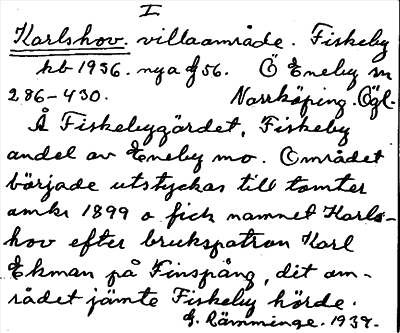 I
Karlshov. villaområde. Fiskeby
kb 1956. nya f 56. Ö Eneby sn
286-430. Norrköping. Ögl.
Å Fiskebygärdet, Fiskeby
andel av Eneby mo. Området
började utstyckas till tomter
omkr 1899 o fick namnet Karls-
hov efter brukspatron Karl
Ekman på Finspång, dit om-
rådet jämte Fiskeby hörde.
G. Rämminge. 1937.